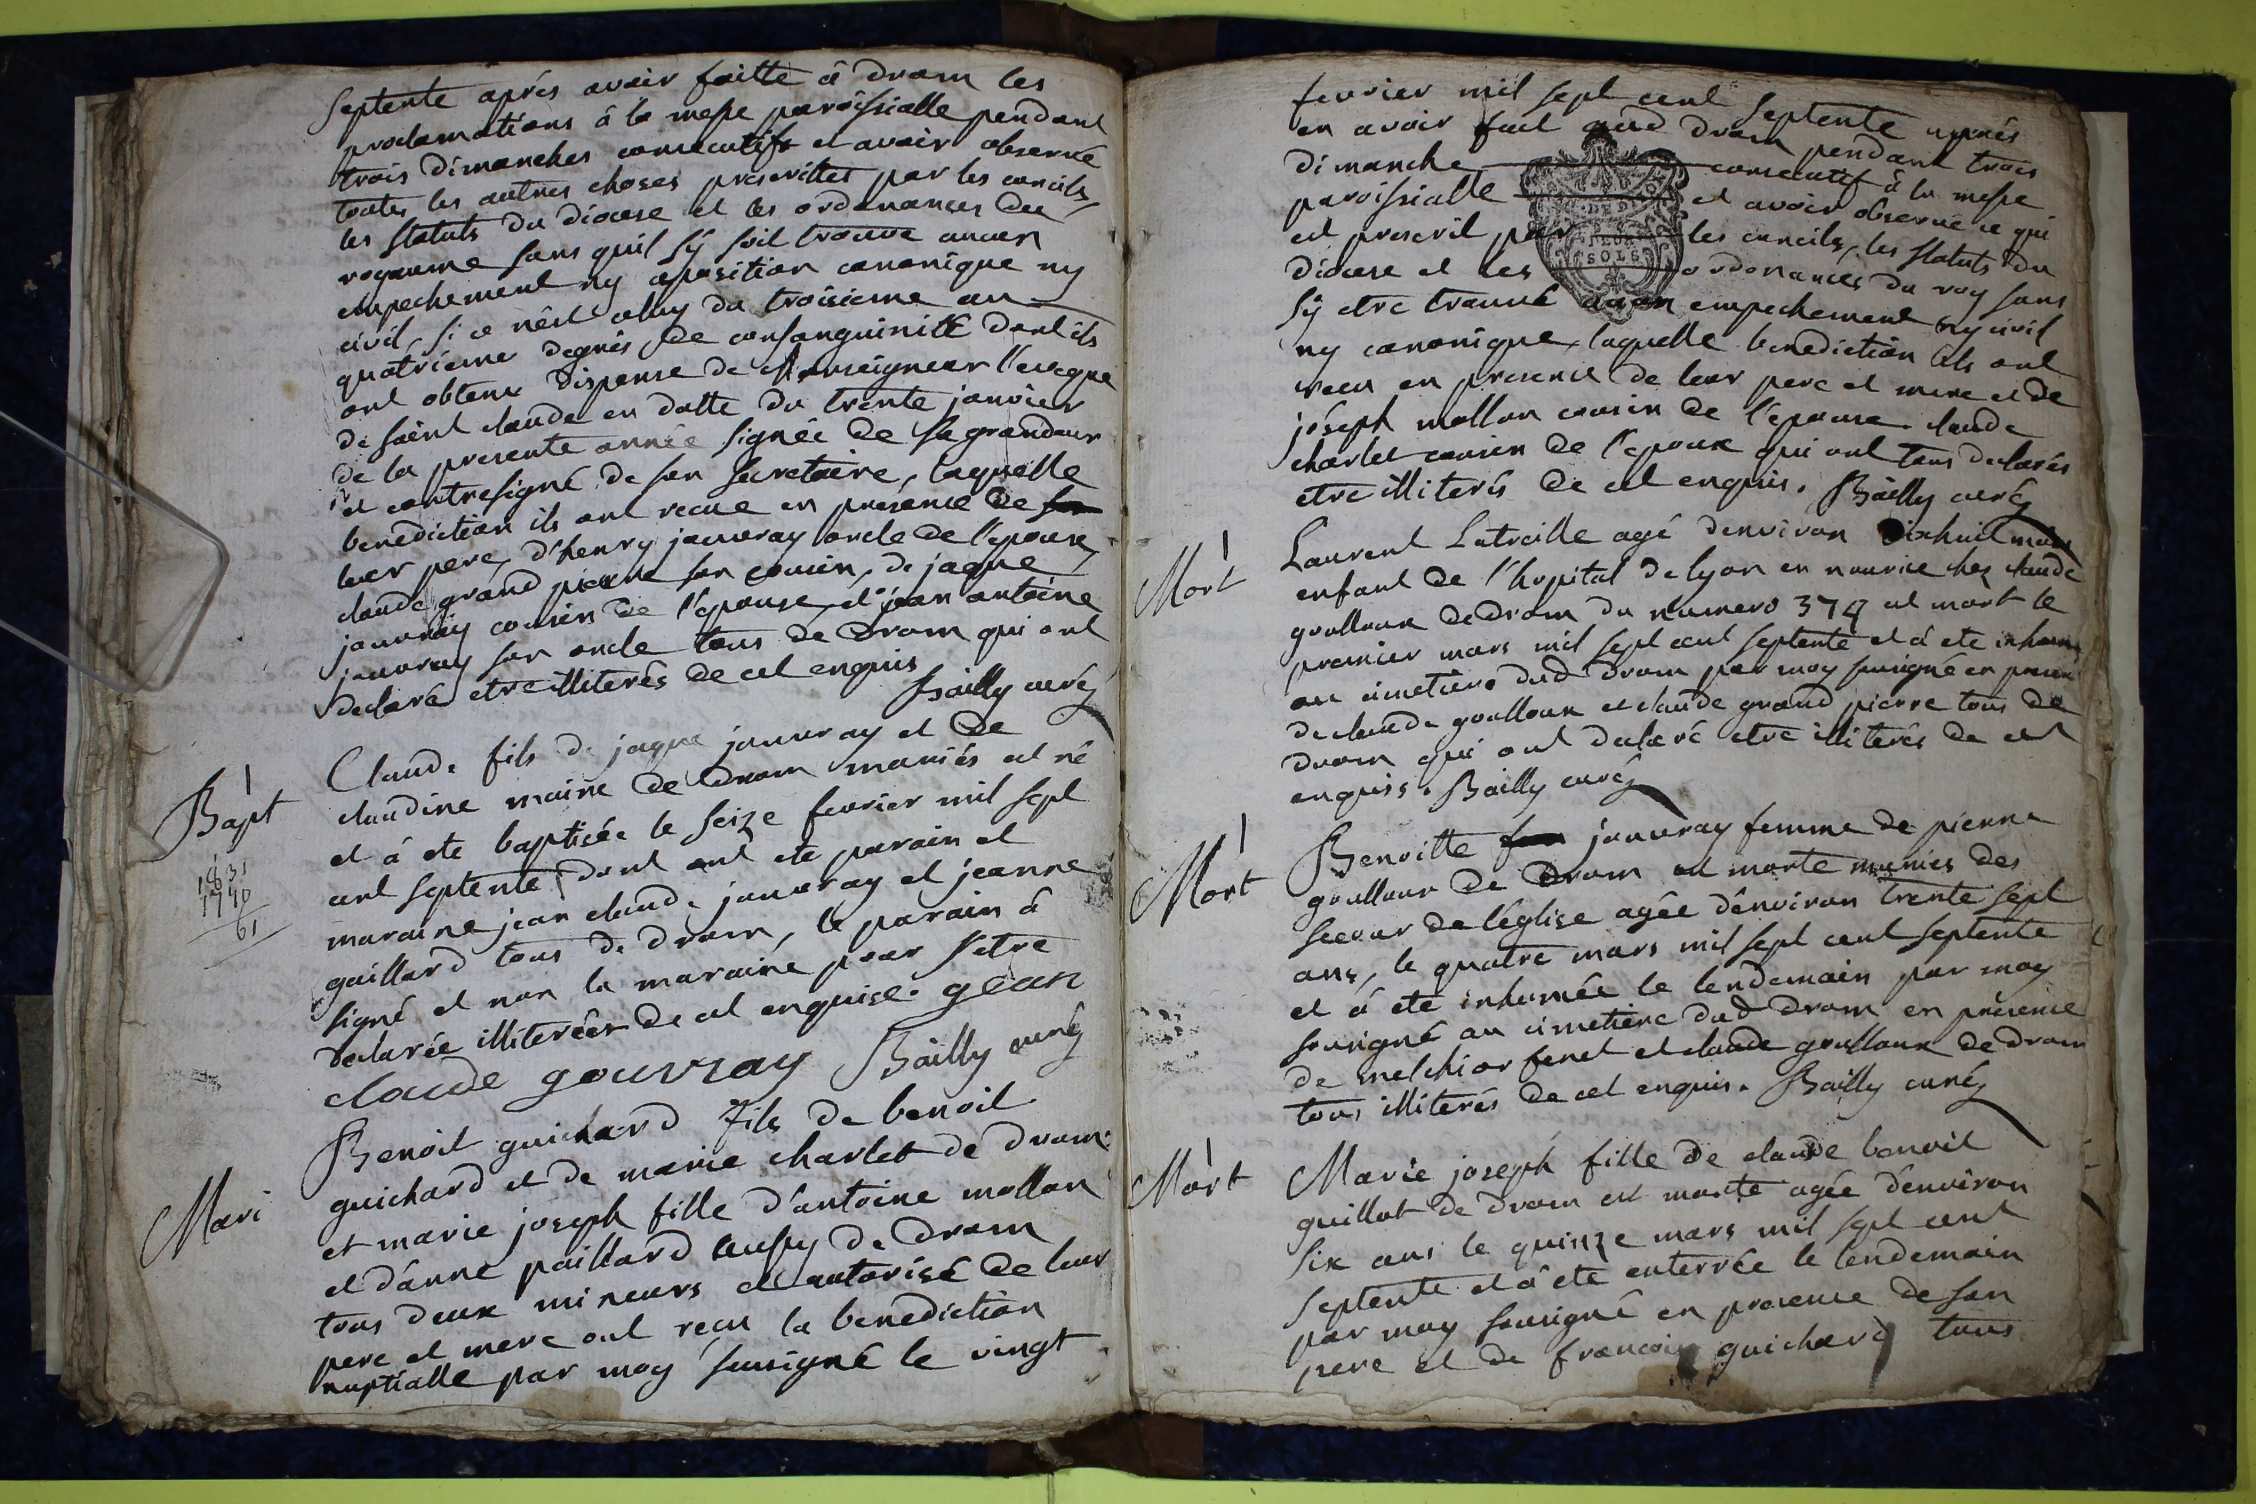 septente aprés avoir faitte â dram les
proclamations â la messe paroissialle pendant
trois dimanches consecutifs et avoir observé
toutes les autres choses prescrittes par les conciles
les statuts du diocese et les ordonances du
royaume sans quil sÿ soit trouvé aucun
empechement ny oposition canonique ny
civil, si ce nêst celuy du troisieme au
quatrieme degrés de consanguinité dont ils
ont obtenu dispense de Monseigneur l'eveque
de saint claude en datte du trente janvier
de la presente année signée de sa grandeur
et contresigné de son secretaire, laquelle
benediction ils ont recue en présence de
leur pere, d'henry jauvray oncle de l'epouse,
claude grand pierre son cousin, de jaque
jauvray cousin de l'épouse, et jean antoine
jauvray son oncle tous de dram qui ont
declaré etre illiterés de cet enquis
Bailly curé
Bapt
Claude fils de jaque jauvray et de
claudine maine de dram mariés est né
et â ete baptisée le seize fevrier mil sept
cent septente, dont ont ete parain et
maraine jean claude jauvray et jeanne
gaillard tous de dram, le parain â
signé et non la maraine pour s'etre
declarée illiterée de cet enquise. gean
claude gouvray Bailly curé
1831
1770
61
Mari
Benoit guichard fils de benoit
guichard et de marie charlet de dram
et marie joseph fille d'antoine mollon
et d'anne paillard aussy de dram
tous deux mineurs et autorisé de leur
pere et mere ont reçu la benediction
nuptialle par moy sousigné le vingt
fevrier mil sept cent septente aprés
en avoir fait aud dram pendant trois
dimanche consecutif â la messe
paroissialle et avoir observé ce qui
est prescrit par les conciles, les statuts du
diocese et les ordonances du roy sans
sÿ etre trouvé aucun empechement ny civil
ny canonique, laquelle benediction ils ont
recu en presence de leur pere et mere et de
joseph mollon cousin de l'epouse claude
charlet cousin de l'epoux qui ont tous declarés
etre illiterés de cet enquis. Bailly curé
Mort
Laurent Latreille agé denviron dixhuit mois
enfant de l'hopital de lyon en nourice chez claude
goulloux de dram du numero 374 est mort le
premier mars mil sept cent septente et â ete inhumé
au cimetiere dud dram par moy sousigné en presence
de claude goulloux et claude grand pierre tous de
dram qui ont declaré etre illiterés de cet
enquis. Bailly curé
Mort
Benoitte jauvray femme de pierre
goulloux de dram est morte munies des
secour de l'église agée d'environ trente sept
ans, le quatre mars mil sept cent septente
et â ete inhumée le lendemain par moy
sousigné au cimetiere dud dram en présence
de melchior fenet et claude goulloux de dram
tous illiterés de cet enquis. Bailly curé
Mort
Marie joseph fille de claude benoit
guillot de dram est morte agée d'environ
six ans le quinze mars mil sept cent
septente et â ete enterrée le lendemain
par moy sousigné en presence de son
pere et de francois guichard tous